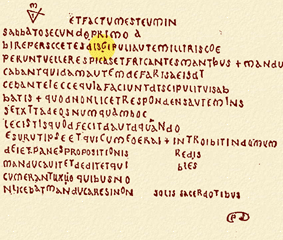 ETFACTUMESTEUMIN
SABBATOSECUNDOPRIMO A
BIREPERSCCETESDISCIPULIAUTEMILLIRISCOE
PERUNTVELLERESPICASETFRICANTESMANTBUS + MANDU
CABANTQUIDAMAUTEMDEFARISAEISDT
CEBANTELECCEQUIAFACIUNTDTSCIPULITUISAB
BATIS + QUODNONLICETRESPONDENSAUTEMINS
SETXTTADEOSNUMQUAMHOC
LECISTISQUODFECITDAUTDQUANDO
ESURUTIPSEETQUICUMEOERAT + INTROIBITINDOMUM
DEIETPANESPROPOSITIONIS REDIS
MANDUCAUITETDEDITETQUI BLES
CUMERANT QUIBUSNO
NLICEBATMANDUCARESINON SOLIS SACERDOTIBUS